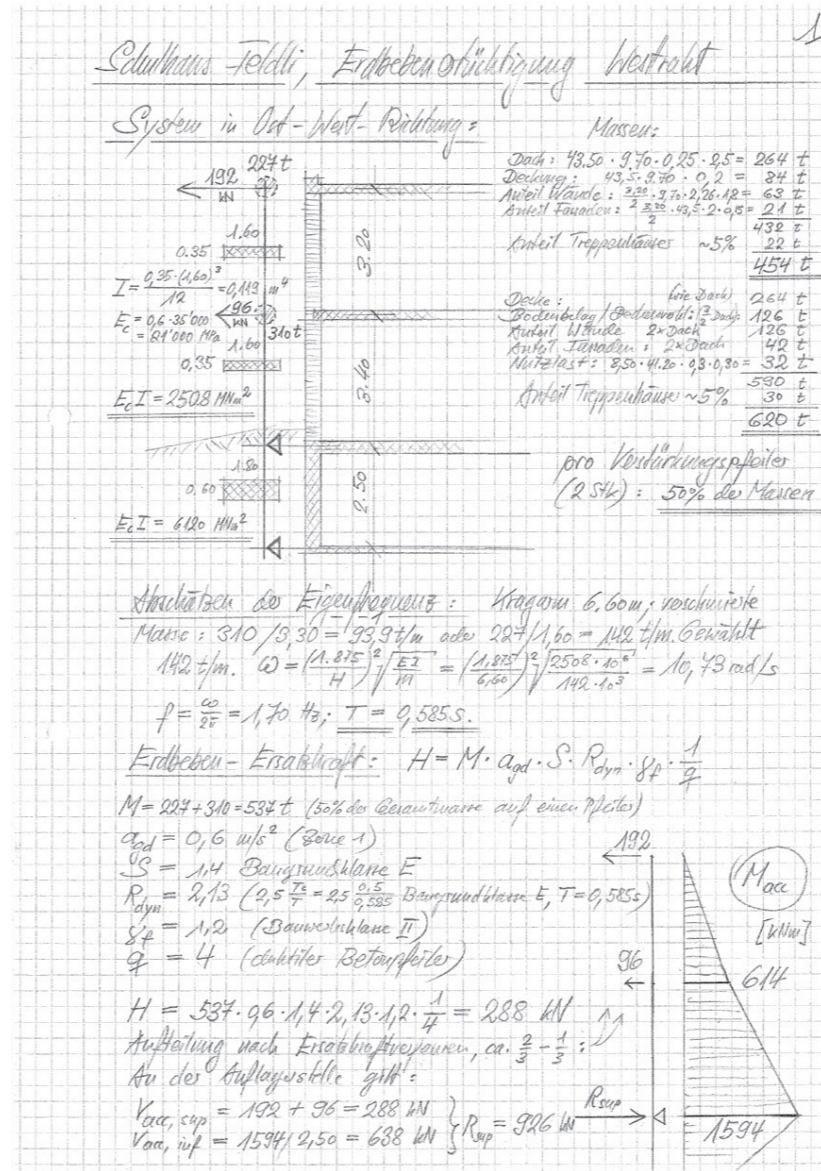 1
Schulhaus Feldli, Erdbebenertüchtigung Westtrakt
System in Ost-West-Richtung:
227 t
192
kN
1.60
0.35
I = 0,35·(1,60)³ / 12 = 0,119 m⁴
E_c = 0,6·35'000
= 21'000 MPa
96
kN
310 t
1.60
0,35
E_c I = 2508 MNm²
1.80
0.60
E_c I = 6120 MNm²
3.20
3.40
2.50
Massen:
Dach: 43.50 · 9.70 · 0,25 · 2,5 = 264 t
Deckung: 43,5 · 9.70 · 0,2 = 84 t
Anteil Wände: 3,20/2 · 9,70 · 2,26 · 1,8 = 63 t
Anteil Fassaden: 3,20/2 · 43,5 · 2 · 0,15 = 21 t
432 t
Anteil Treppenhäuser ~5% 22 t
454 t
Decke: (wie Dach) 264 t
Bodenbelag / 126 t
Anteil Wände 2×Dach 126 t
Anteil Fassaden: 2×Dach 42 t
Nutzlast: 8,50 · 41.20 · 0,3 · 0,30 = 32 t
590 t
Anteil Treppenhäuser ~5% 30 t
620 t
pro Verstärkungspfeiler
(2 Stk): 50% der Massen
Abschätzen der Eigenfrequenz: Kragarm 6,60m; verschmierte
Masse: 310 / 3,30 = 93,9 t/m oder 227/1,60 = 142 t/m. Gewählt
142 t/m. ω = (1.875/H)² √(EI/m) = (1,875/6,60)² √(2508·10⁶/142·10³) = 10,73 rad/s
f = ω/2π = 1,70 Hz; T = 0,585 s.
Erdbeben-Ersatzkraft: H = M · a_gd · S · R_dyn · γ_f · 1/q
M = 227 + 310 = 537 t (50% der Gesamtmasse auf einen Pfeiler)
a_gd = 0,6 m/s² (Zone 1)
S = 1,4 Baugrundklasse E
R_dyn = 2,13 (2,5 Tc/T = 2,5 0,5/0,585 Baugrundklasse E, T=0,585s)
γ_f = 1,2 (Bauwerksklasse II)
q = 4 (duktiler Betonpfeiler)
H = 537 · 0,6 · 1,4 · 2,13 · 1,2 · 1/4 = 288 kN
Aufteilung nach Ersatzkraftverfahren, ca. 2/3 - 1/3:
An der Auflagerstelle gilt:
V_acc, sup = 192 + 96 = 288 kN
V_acc, inf = 1594/2,50 = 638 kN
} R_sup = 926 kN
192
96
R_sup
M_acc
[kNm]
614
1594